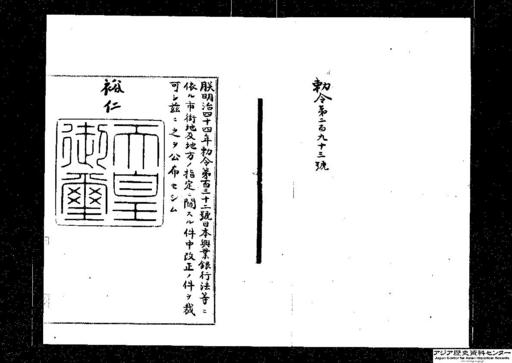 勅令第二百九十三號
朕明治四十四年勅令第百三十二號日本興業銀行法等ニ
依ル市街地及地方ノ指定ニ關スル件中改正ノ件ヲ裁
可シ茲ニ之ヲ公布セシム
裕仁
天皇
御璽
アジア歴史資料センター
Japan Center for Asian Historical Records